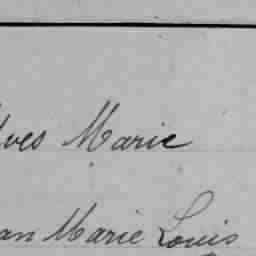 Yves Marie
an Marie Louis